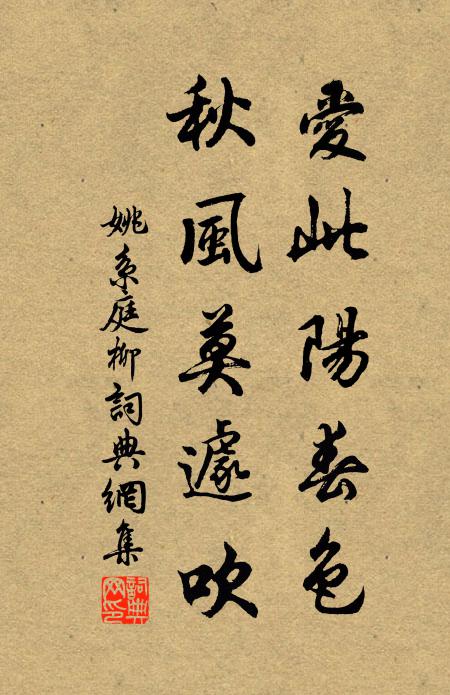 愛此陽春色
秋風莫遽吹
姚系庭柳詞典網集
詞典网印